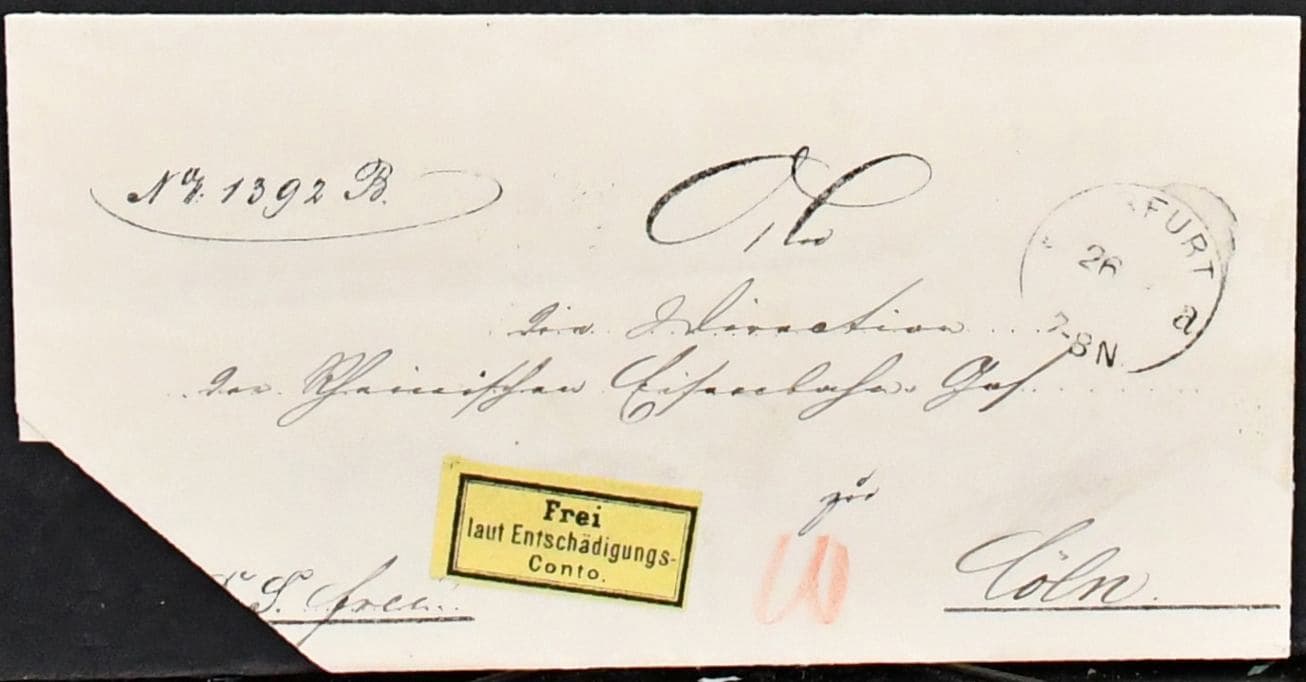 No. 1392 B.
An
die Direction
der Rheinischen Eisenbahn Ges
zu
Cöln.
FURT
26
7-8N.
a
Frei
laut Entschädigungs-
Conto.
S. frei